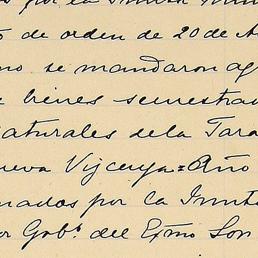 por la
de orden de 20 de A
no se mandaron ag
e bienes semestra
aturales dela Tara
ueva Vizcaya = Año
nados por la Junta
or Gobr. del Exmo Son